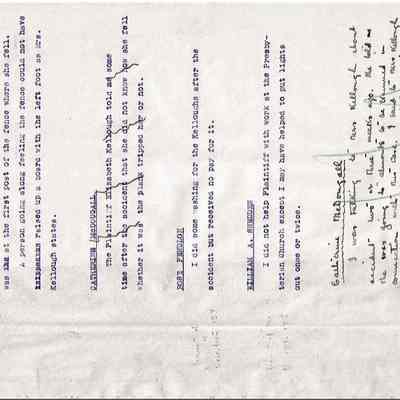 was and at the first post of the fence where she fell.
A person going along feeling the fence could not have
raised up a board with the left foot as Mrs.
Kellough states.
CATHERINE McDOUGALL
The Plaintiff Elizabeth Kellough told me some
time after the accident that she did not know how she fell
whether it was the plank tripped her or not.
ROSE
I did some washing for the Kelloughs after the
accident but received no pay for it.
WILLIAM A.
I did not help Plaintiff with work at the Presby-
terian Church except I may have helped to put lights
out once or twice.
Catharine McDougall
I was talking to Mrs Kellough about
accident two or three weeks ago. She told me
she was going to
connection with this case. I said to Mrs Kellough